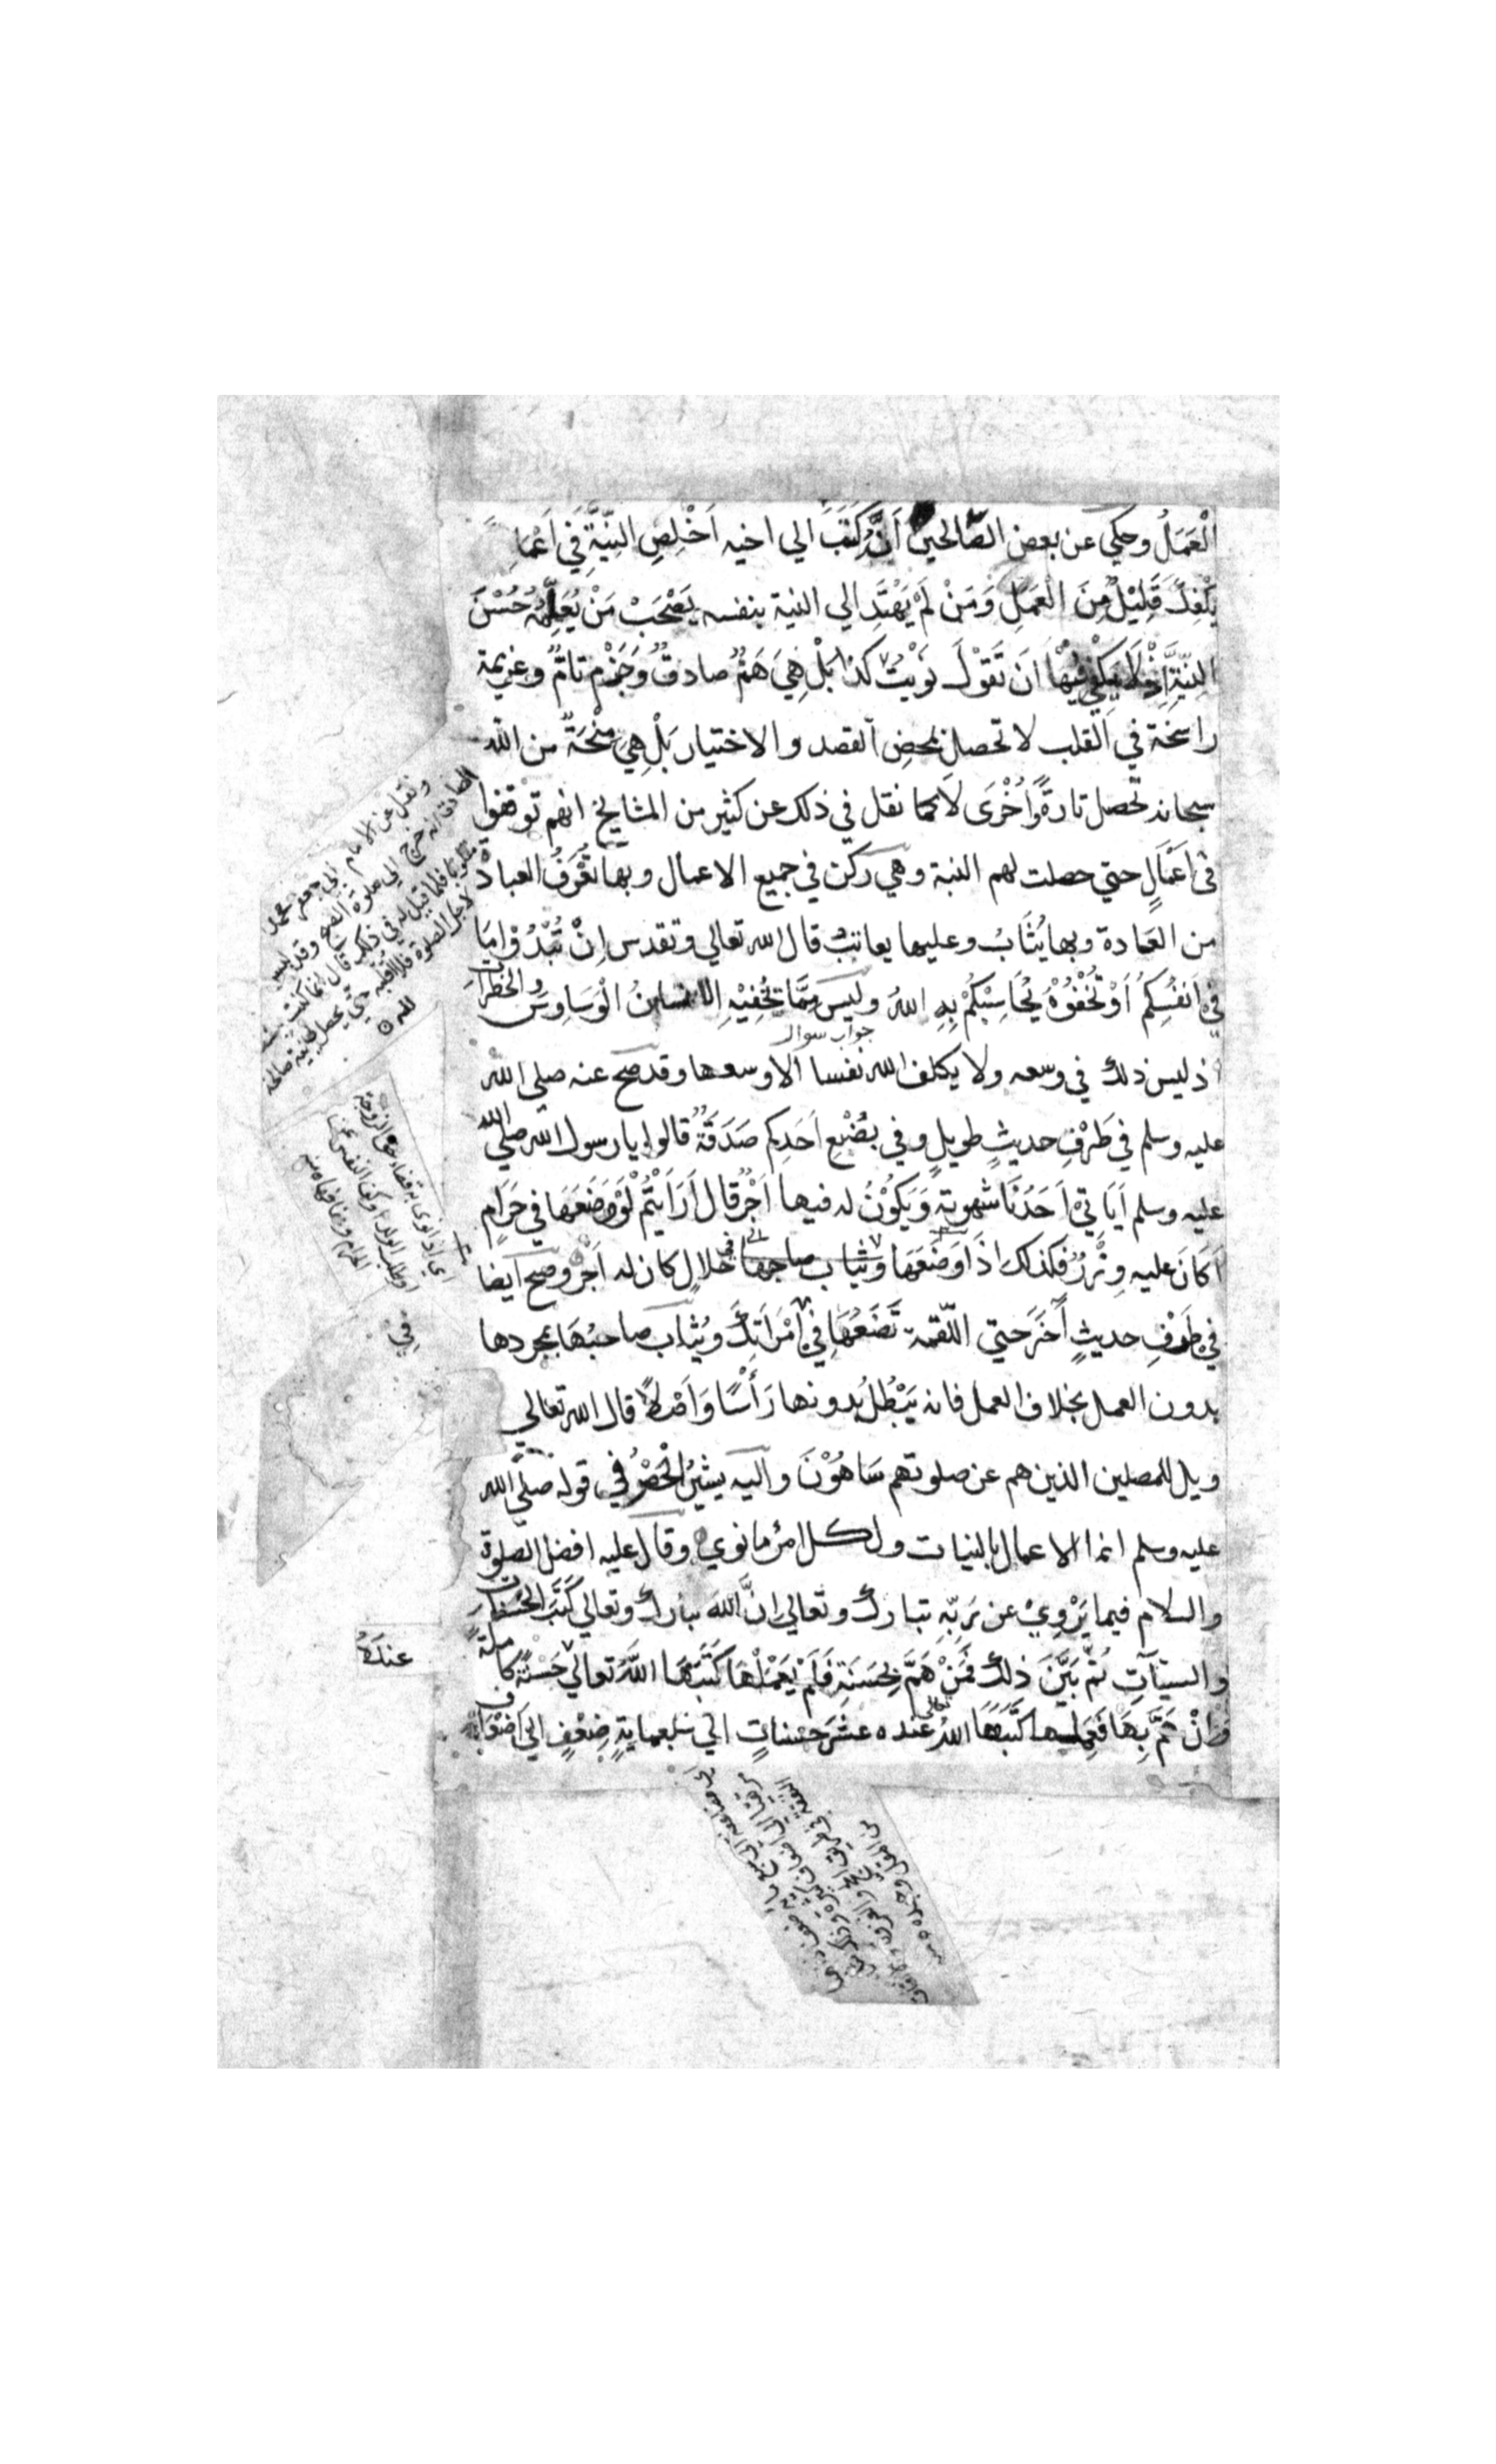 الْعَمَلُ وحكي عن بعض الصَّالحين أَنَّهُ كَتَبَ الي اخيه اَخْلِصِ النِّيَّةَ فِي اَعْمَا
يَكْفِكَ قَلِيْلٌ مِنَ الْعَمَلِ وَمَنْ لَمْ يَهْتَدِ الي النية بنفسه يَصْحَبْ مَنْ يُعَلِّمُهُ حُسْنَ
النِّيَّةِ اِذْ لَا يَكْفِي فِيْهَا اَنْ تَقُوْلَ نَوَيْتُ كذا بَلْ هِيَ هَمٌّ صادقٌ وَجَزْم تامٌّ وعزيمة
راسخة في القلب لا تحصل بمحضِ القصد والاختيار بَلْ هِيَ مِنْحَةٌ من الله
سبحانه تحصل تارةً وَاُخْرَى لَا كما نقل في ذلك عن كثير من المشايخ انهم توقفوا
فى اَعْمَالٍ حتي حصلت لهم النية وهي ركن في جميع الاعمال وبها تُعْرَفُ العبادة
من العَادة وبها يُثَابُ وعليها يعاتبُ قال الله تعالي وتقدس اِنْ تُبْدُوْا مَا
فِي اَنْفُسِكُمْ اَوْ تُخْفُوْهُ يُحَاسِبْكُمْ بِهِ اللهُ وليسَ مِمَّا يُخْفِيْهِ الانسانُ الْوَسَاوِسَ والخطرات
جواب سوال
اذ ليس ذلك في وسعه ولا يكلف الله نفسا الا وسعها وقد صح عنه صلى الله
عليه وسلم في طَرْفِ حديثٍ طويلٍ وفي بُضْعِ اَحَدِكم صَدَقَةٌ قالوا يا رسول الله صلي الله
عليه وسلم اَيَاتِي اَحَدُنَا شهوته وَيَكُوْنُ له فيها اَجْرٌ قال اَرَاَيْتُمْ لَوْ وَضَعَهَا في حَرَامٍ
اَكَانَ عليه وِزْرٌ فكذلك اذَا وَضَعَهَا وثياب صاحبها في حَلالٍ كان له اَجْرٌ وصح ايضا
في طَرْفِ حديثٍ آخَرَ حتي اللّقمة تَضَعُهَا فِي امْرَاَتِكَ ويُثَابَ صاحبُهَا بمجردها
بدون العمل بخلاف العمل فانه يَبْطُلُ بدونها رَأْسًا وَاَصْلًا قال الله تعالي
ويل للمصلين الذين هم عن صلوتهم سَاهُوْنَ واليه يشيرُ الْحَصْرُ في قوله صلي الله
عليه وسلم انما الاعمال بالنيات ولكل امرئ ما نوي وقال عليه افضل الصلوة
والسلام فيما يَرْوِيْ عن رَبِّهِ تبارك وتعالى انَّ اللهَ تبارك وتعالى كَتَبَ الْحَسَنات
والسيئآتِ ثُمَّ بَيَّنَ ذلك فَمَنْ هَمَّ بِحَسَنَةٍ فَلَمْ يَعْمَلْهَا كَتَبَهَا اللَّهُ تعالي حَسَنَةً كاملةً
فَاِنْ هَمَّ بِهَا فَعَمِلَهَا كَتَبَهَا اللهُ تعالى عنده عَشَرَ حَسناتٍ الي سبعمايةِ ضِعْفٍ اليَ اَضْعَافٍ
ونقل عن الامام ابي جعفر محمد
الصادق انه خرج الي صلوة الصبح وقد لبس
مقلوبا فلما قيل له في ذلك قال انما كنت
لاجل الصلوة فلا اقلبه حتي يحصل لي نية صالحة
لله
اي اذا نوى به قضاء حق الزوجة
او طلب الولد او كف النفس عن
الحرام
في
عندَهُ